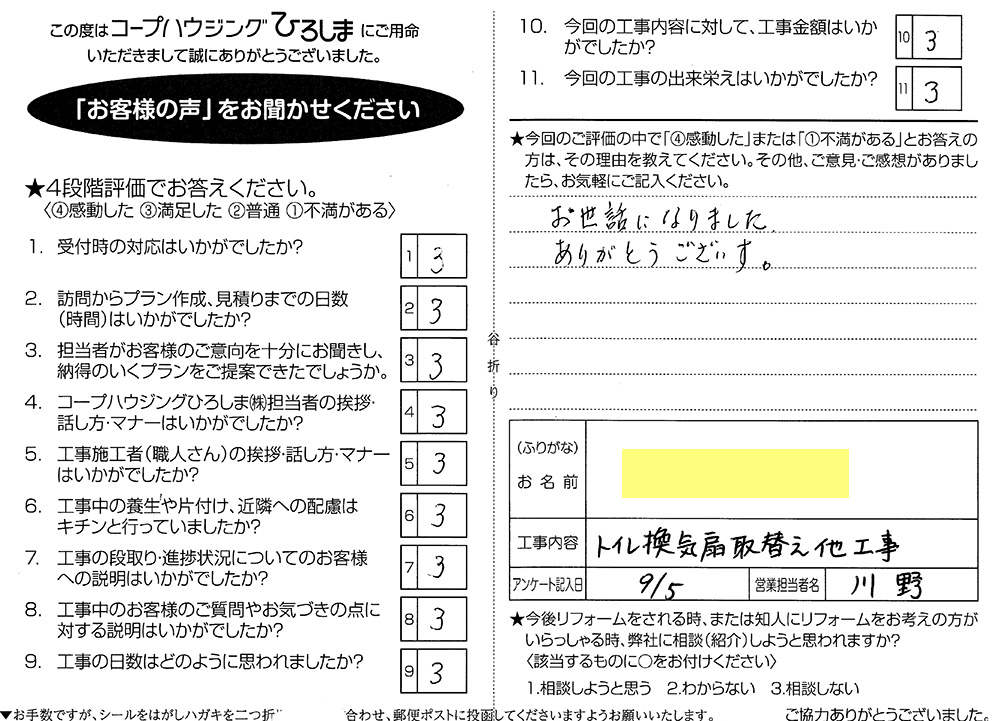 この度はコープハウジングひろしまにご用命
いただきまして誠にありがとうございました。
「お客様の声」をお聞かせください
★4段階評価でお答えください。
〈④感動した ③満足した ②普通 ①不満がある〉
1. 受付時の対応はいかがでしたか?
1 3
2. 訪問からプラン作成、見積りまでの日数
(時間)はいかがでしたか?
2 3
3. 担当者がお客様のご意向を十分にお聞きし、
納得のいくプランをご提案できたでしょうか。
3 3
4. コープハウジングひろしま㈱担当者の挨拶・
話し方・マナーはいかがでしたか?
4 3
5. 工事施工者(職人さん)の挨拶・話し方・マナー
はいかがでしたか?
5 3
6. 工事中の養生や片付け、近隣への配慮は
キチンと行っていましたか?
6 3
7. 工事の段取り・進捗状況についてのお客様
への説明はいかがでしたか?
7 3
8. 工事中のお客様のご質問やお気づきの点に
対する説明はいかがでしたか?
8 3
9. 工事の日数はどのように思われましたか?
9 3
谷折り
10. 今回の工事内容に対して、工事金額はいか
がでしたか?
10 3
11. 今回の工事の出来栄えはいかがでしたか?
11 3
★今回のご評価の中で「④感動した」または「①不満がある」とお答えの
方は、その理由を教えてください。その他、ご意見・ご感想がありまし
たら、お気軽にご記入ください。
お世話になりました
ありがとうございます。
(ふりがな)
お名前
工事内容 トイレ換気扇取替え他工事
アンケート記入日 9/5 営業担当者名 川野
★今後リフォームをされる時、または知人にリフォームをお考えの方が
いらっしゃる時、弊社に相談(紹介)しようと思われますか?
〈該当するものに○をお付けください〉
1.相談しようと思う 2.わからない 3.相談しない
▼お手数ですが、シールをはがしハガキを二つ折 合わせ、郵便ポストに投函してくださいますようお願いいたします。 ご協力ありがとうございました。